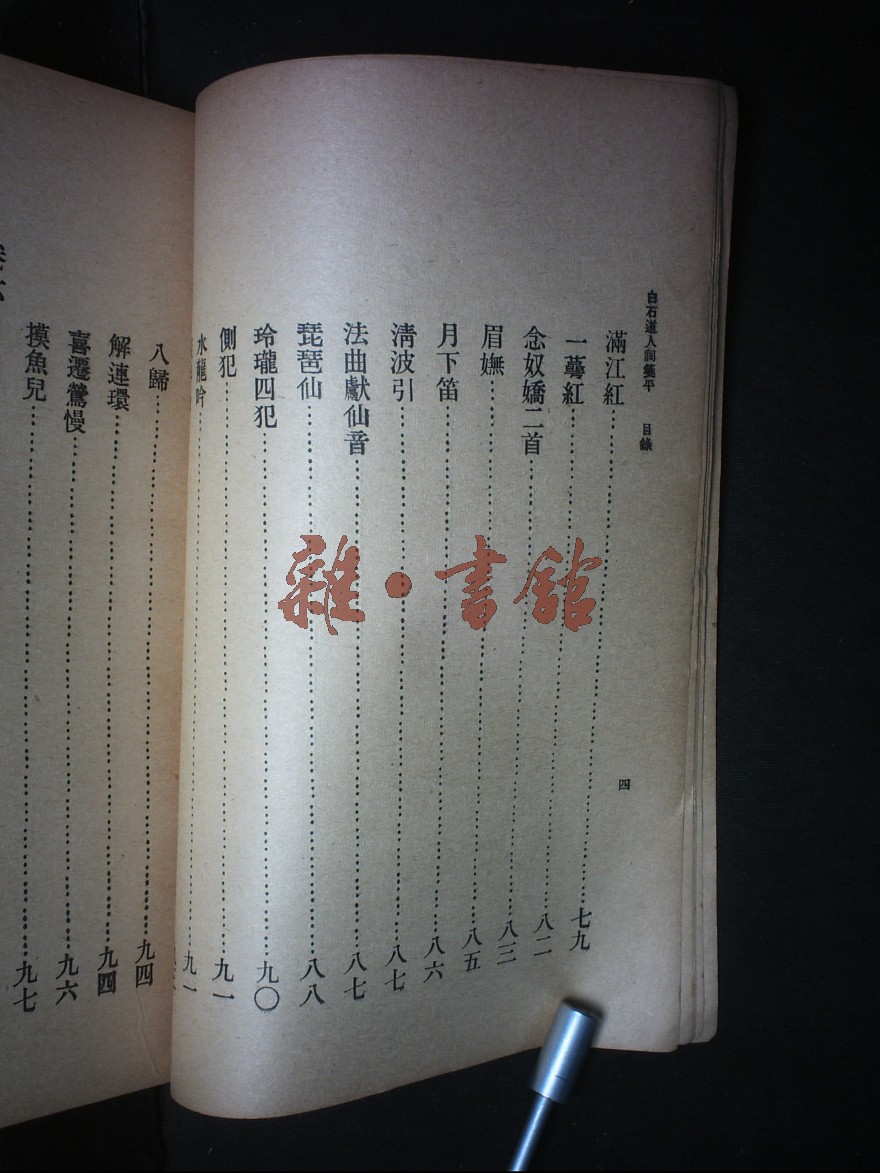 白石道人詞箋平 目錄
四
滿江紅……七九
一萼紅……八二
念奴嬌二首……八三
眉嫵……八五
月下笛……八六
清波引……八七
法曲獻仙音……八七
琵琶仙……八八
玲瓏四犯……九〇
側犯……九一
水龍吟……九一
八歸……九四
解連環……九四
喜遷鶯慢……九六
摸魚兒……九七
雜·書館